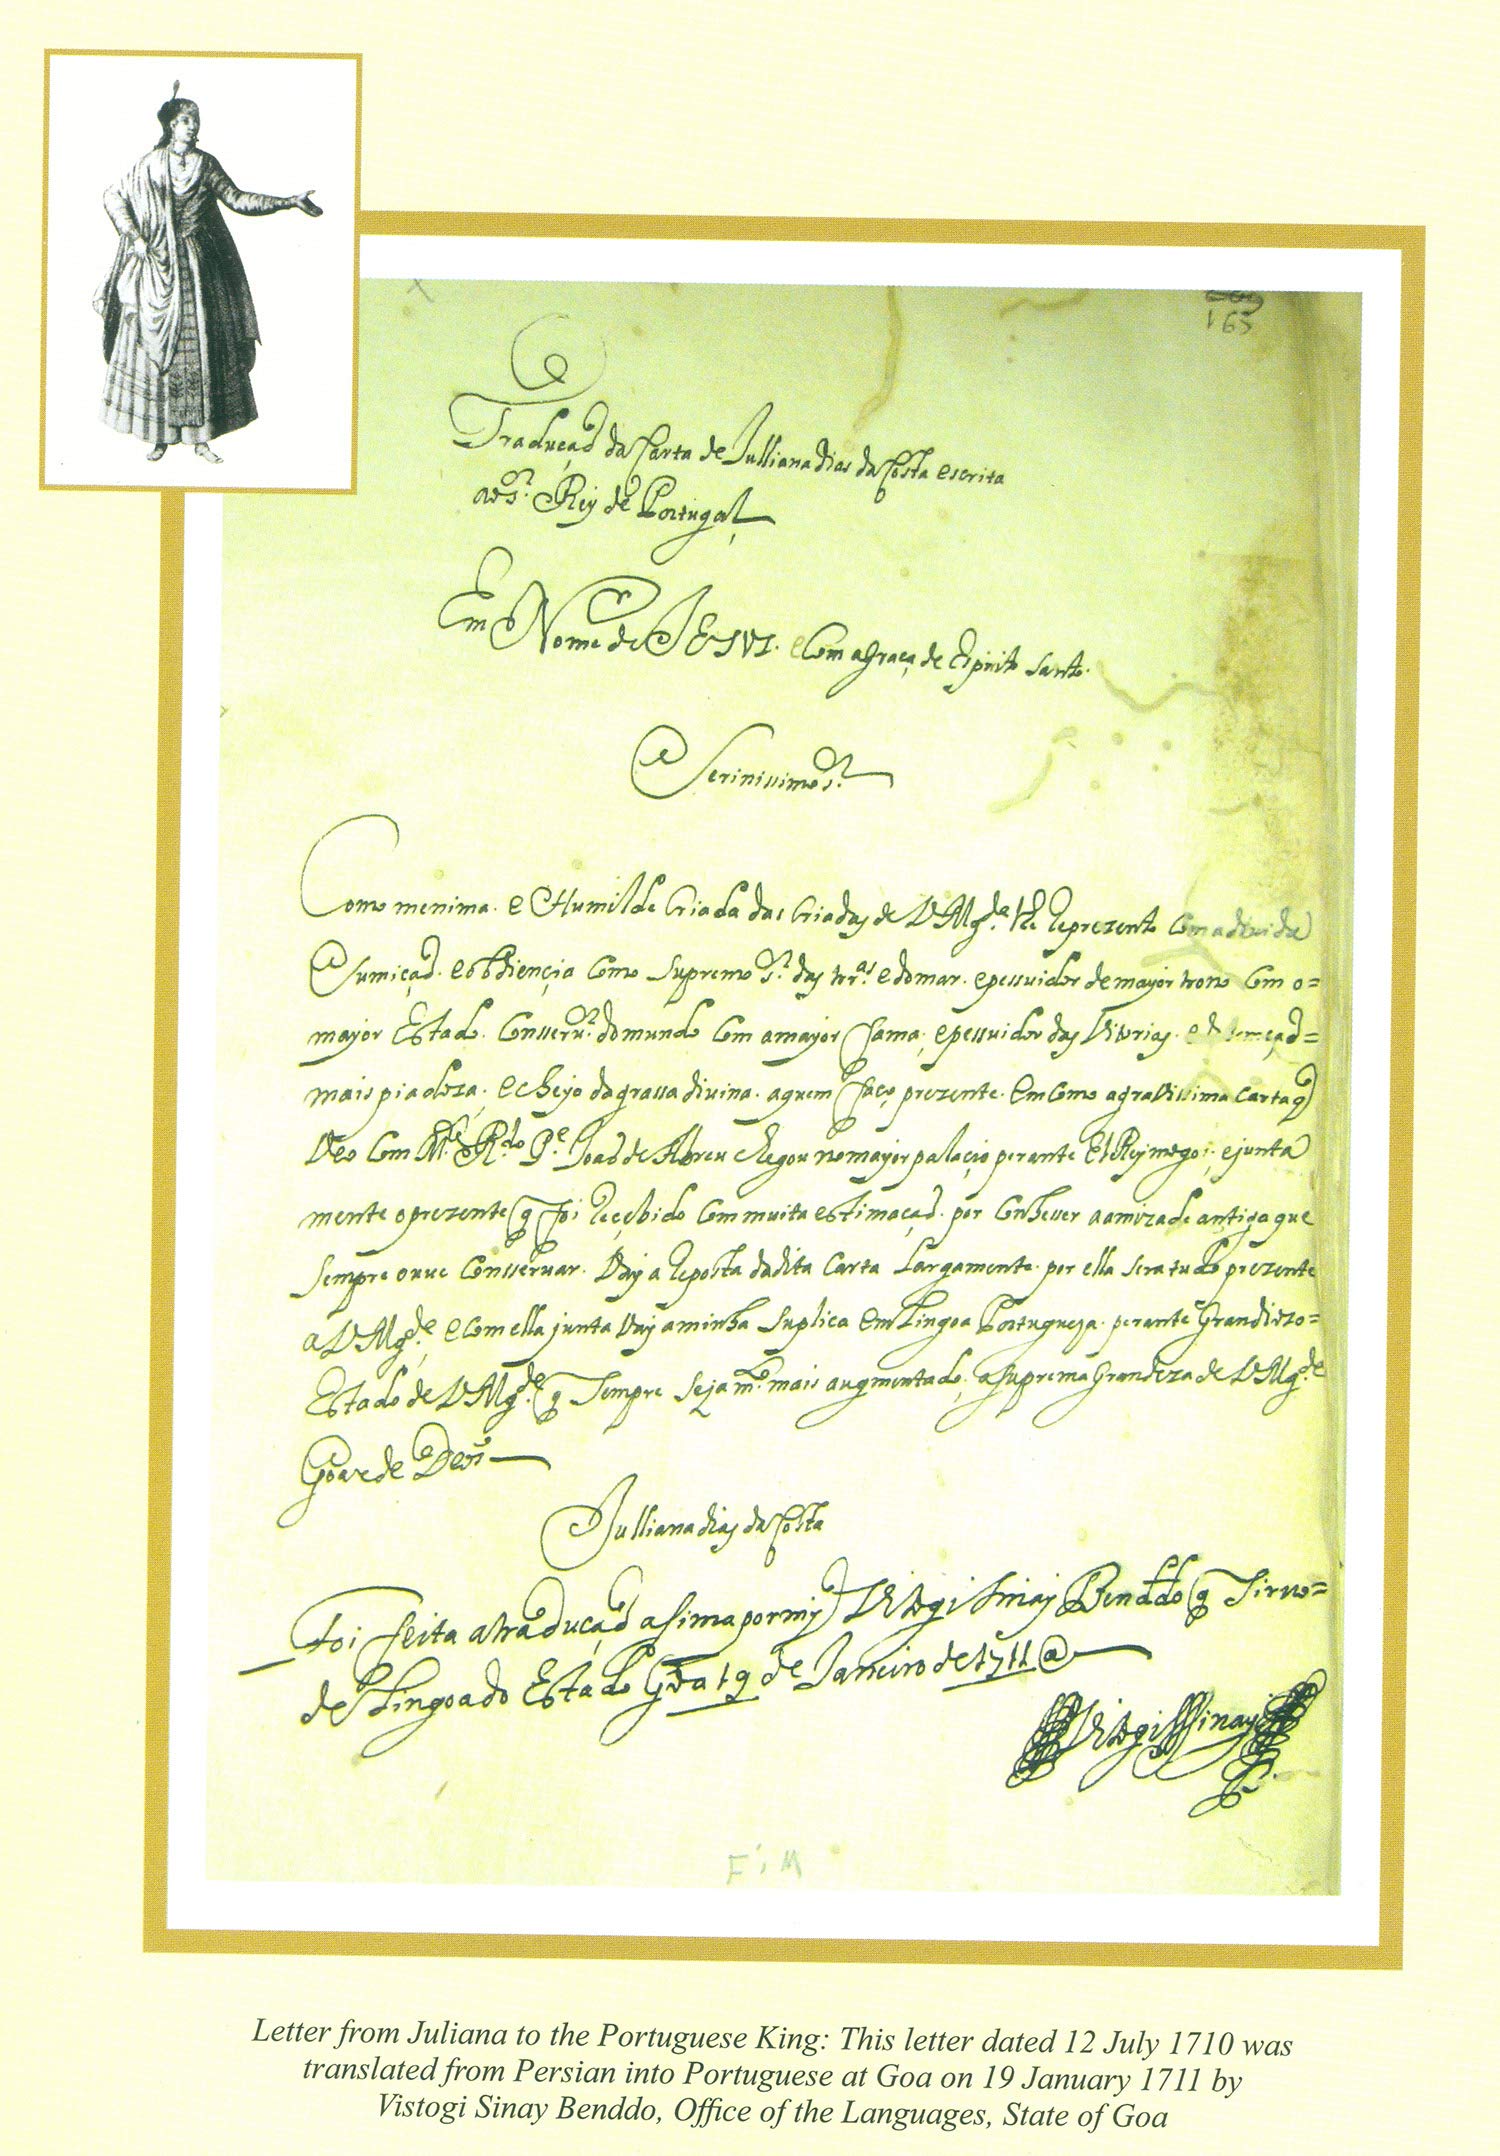 165
Traduçaõ da Carta de Julliana dias da Costa escrita
ao S.or Rey de Portugal
Em Nome de JESVS. e Com a graça de Espirito santo.
Serinissimo S.or
Como menima. e Humilde Criada das Criadas de V Mg.de lhe reprezento Com a divida
sumiçaõ. e obdiençia Como supremo S.or das trr.as e do mar. e pessuidor de mayor trono Com o=
mayor Estado. Conserv.or do mundo Com a mayor fama, e pessuidor das Vitorias. e
mais piadoza. e cheyo da grassa divina. a quem faço prezente. Em Como a gravissima Carta q
Veo Com M.to R.do P.e Joaõ de Abreu chegou no mayor palaçio perante El Rey mogor. e junta
mente o prezente q foi reçebido Com muita estimaçaõ. por Conhesser a amizade antiga que
sempre ouue Consservar. Vay a reposta da dita Carta Largamente. por ella sera tudo prezente
a V Mg.de, e Com ella junta Vay a minha suplica em Lingoa Portugueza. perante Grandiozo=
Estado de V Mg.de q sempre seja m.to mais augmentado. a suprema Grandeza de V Mg.de
Goarde Deos
Julliana dias da Costa
Foi feita a traduçaõ asima por my Vitogi Sinay Benddo q Sirvo=
de Lingoa do Estado Goa 19 de Janeiro de 1711 @
Vitogi Sinay
FiM
Letter from Juliana to the Portuguese King: This letter dated 12 July 1710 was
translated from Persian into Portuguese at Goa on 19 January 1711 by
Vistogi Sinay Benddo, Office of the Languages, State of Goa